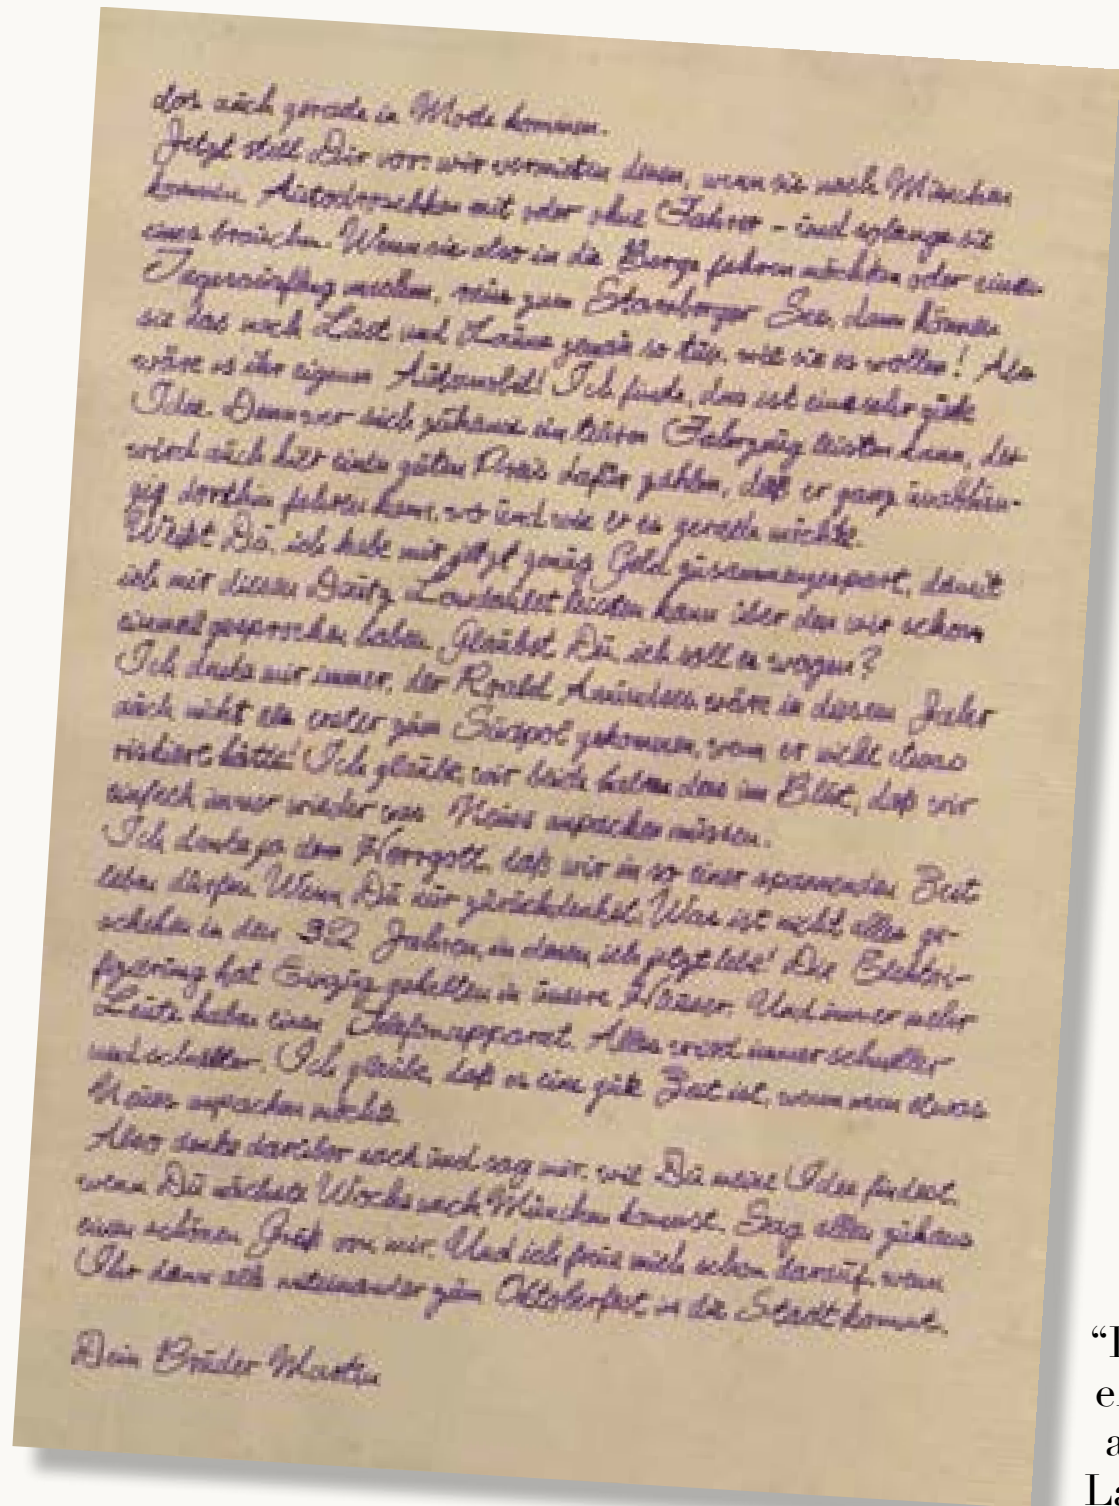 dort auch gerade in Mode kommen.
Jetzt stell Dir vor: wir vermieten denen, wenn sie nach München
kommen, Autodroschken mit oder ohne Fahrer – und solange sie
eines brauchen. Wenn sie also in die Berge fahren möchten oder einen
Tagesausflug machen, raus zum Starnberger See, dann können
sie das nach Lust und Laune genau so tun, wie sie es wollen! Als
wäre es ihr eigenes Automobil! Ich finde, das ist eine sehr gute
Idee. Denn wer sich zuhause ein teures Fahrzeug leisten kann, der
wird auch hier einen guten Preis dafür zahlen, daß er ganz unabhän-
gig dorthin fahren kann, wo und wie er es gerade möchte.
Weißt Du, ich habe mir jetzt genug Geld zusammengespart, damit
ich mir diesen Deutz Landaulet leisten kann über den wir schon
einmal gesprochen haben. Glaubst Du, ich soll es wagen?
Ich denke mir immer, der Roald Amundsen wäre in diesem Jahr
auch nicht als erster zum Südpol gekommen, wenn er nicht etwas
riskiert hätte! Ich glaube, wir beide haben das im Blut, daß wir
einfach immer wieder was Neues anpacken müssen.
Ich danke ja dem Herrgott, daß wir in so einer spannenden Zeit
leben dürfen. Wenn Du nur zurückdenkst. Was ist nicht alles ge-
schehen in den 32 Jahren, in denen ich jetzt lebe! Die Elektri-
fizierung hat Einzug gehalten in unsere Häuser. Und immer mehr
Leute haben einen Telefonapparat. Alles wird immer schneller
und schneller. Ich glaube, daß es eine gute Zeit ist, wenn man etwas
Neues anpacken möchte.
Also denke darüber nach und sag mir, wie Du meine Idee findest,
wenn Du nächste Woche nach München kommst. Sag allen zuhaus
einen schönen Gruß von mir. Und ich freue mich schon darauf, wenn
Ihr dann alle miteinander zum Oktoberfest in die Stadt kommt.
Dein Bruder Martin